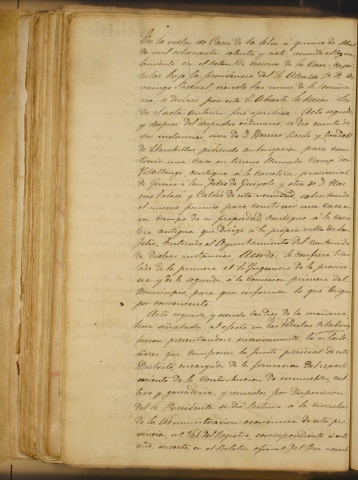 En la villa de Cassá de la Selva á quince de Abril
de mil ochocientos ochenta y siete, reunido el Ayun
tamiento en el salon de sesiones de la Casa Capi
tular bajo la presidencia del Sr Alcalde Dn Do
mingo Pascual, siendo las nueve de la maña
na, se declaró por este Sr abierta la sesion leida
el acta anterior fué aprobada. Acto seguido
y despues del despacho ordinario, se dió cuenta de
dos instancias una de D. Narciso
de Llambillas pidiendo autorizacion para cons
truir una casa en terreno llamado Camp den
Vilallonga contiguo á la carretera provincial
de Gerona á San Feliu de Guixols y otra de D. Nar
ciso y de esta vecindad, solicitando
el mismo permiso para construir una casa
en campo de su propiedad, contiguo á la carre
tera antigua que dirige á la propia villa de San
Feliu. Enterado el Ayuntamiento del contenido
de dichas instancias Acordó: Se confiera tras
lado de la primera al Sr Ingeniero de la provin
cia y de la segunda á la Comision primera del
Municipio, para que informen lo que tengan
por conveniente.
Acto seguido, y siendo las diez de la mañana
hora señalada al efecto en las cédulas de
fueron presentandose sucesivamente, los se
ñores que componen la Junta pericial de este
Distrito, encargada de la formacion del reparti
miento de la Contribucion de inmuebles, cul
tivo y ganaderia, y reunidos por disposicion
del Sr Presidente se dió lectura á la circular
de la Administracion economica de esta pro
vincia, nº 361 del Registro, correspondiente á este
año, inserta en el Boletin oficial del